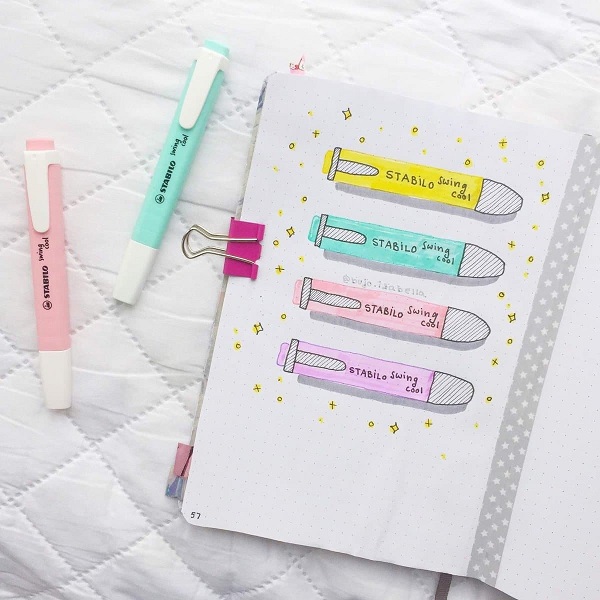 STABILO swing
cool
STABILO swing
cool
STABILO swing
cool
STABILO swing
cool
@bojo.isabella
STABILO swing
cool
STABILO swing
cool
57